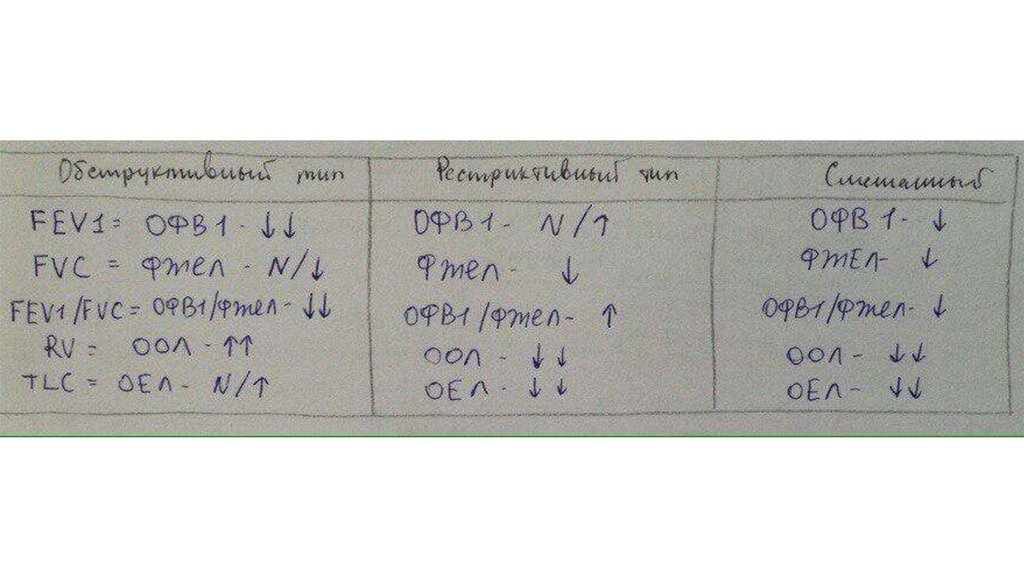 Обструктивный тип Рестриктивный тип Смешанный
FEV1 = ОФВ1 - ↓↓ ОФВ1 - N/↑ ОФВ1 - ↓
FVC = ФЖЕЛ - N/↓ ФЖЕЛ - ↓ ФЖЕЛ - ↓
FEV1/FVC = ОФВ1/ФЖЕЛ - ↓↓ ОФВ1/ФЖЕЛ - ↑ ОФВ1/ФЖЕЛ - ↓
RV = ООЛ - ↑↑ ООЛ - ↓↓ ООЛ - ↓↓
TLC = ОЕЛ - N/↑ ОЕЛ - ↓↓ ОЕЛ - ↓↓